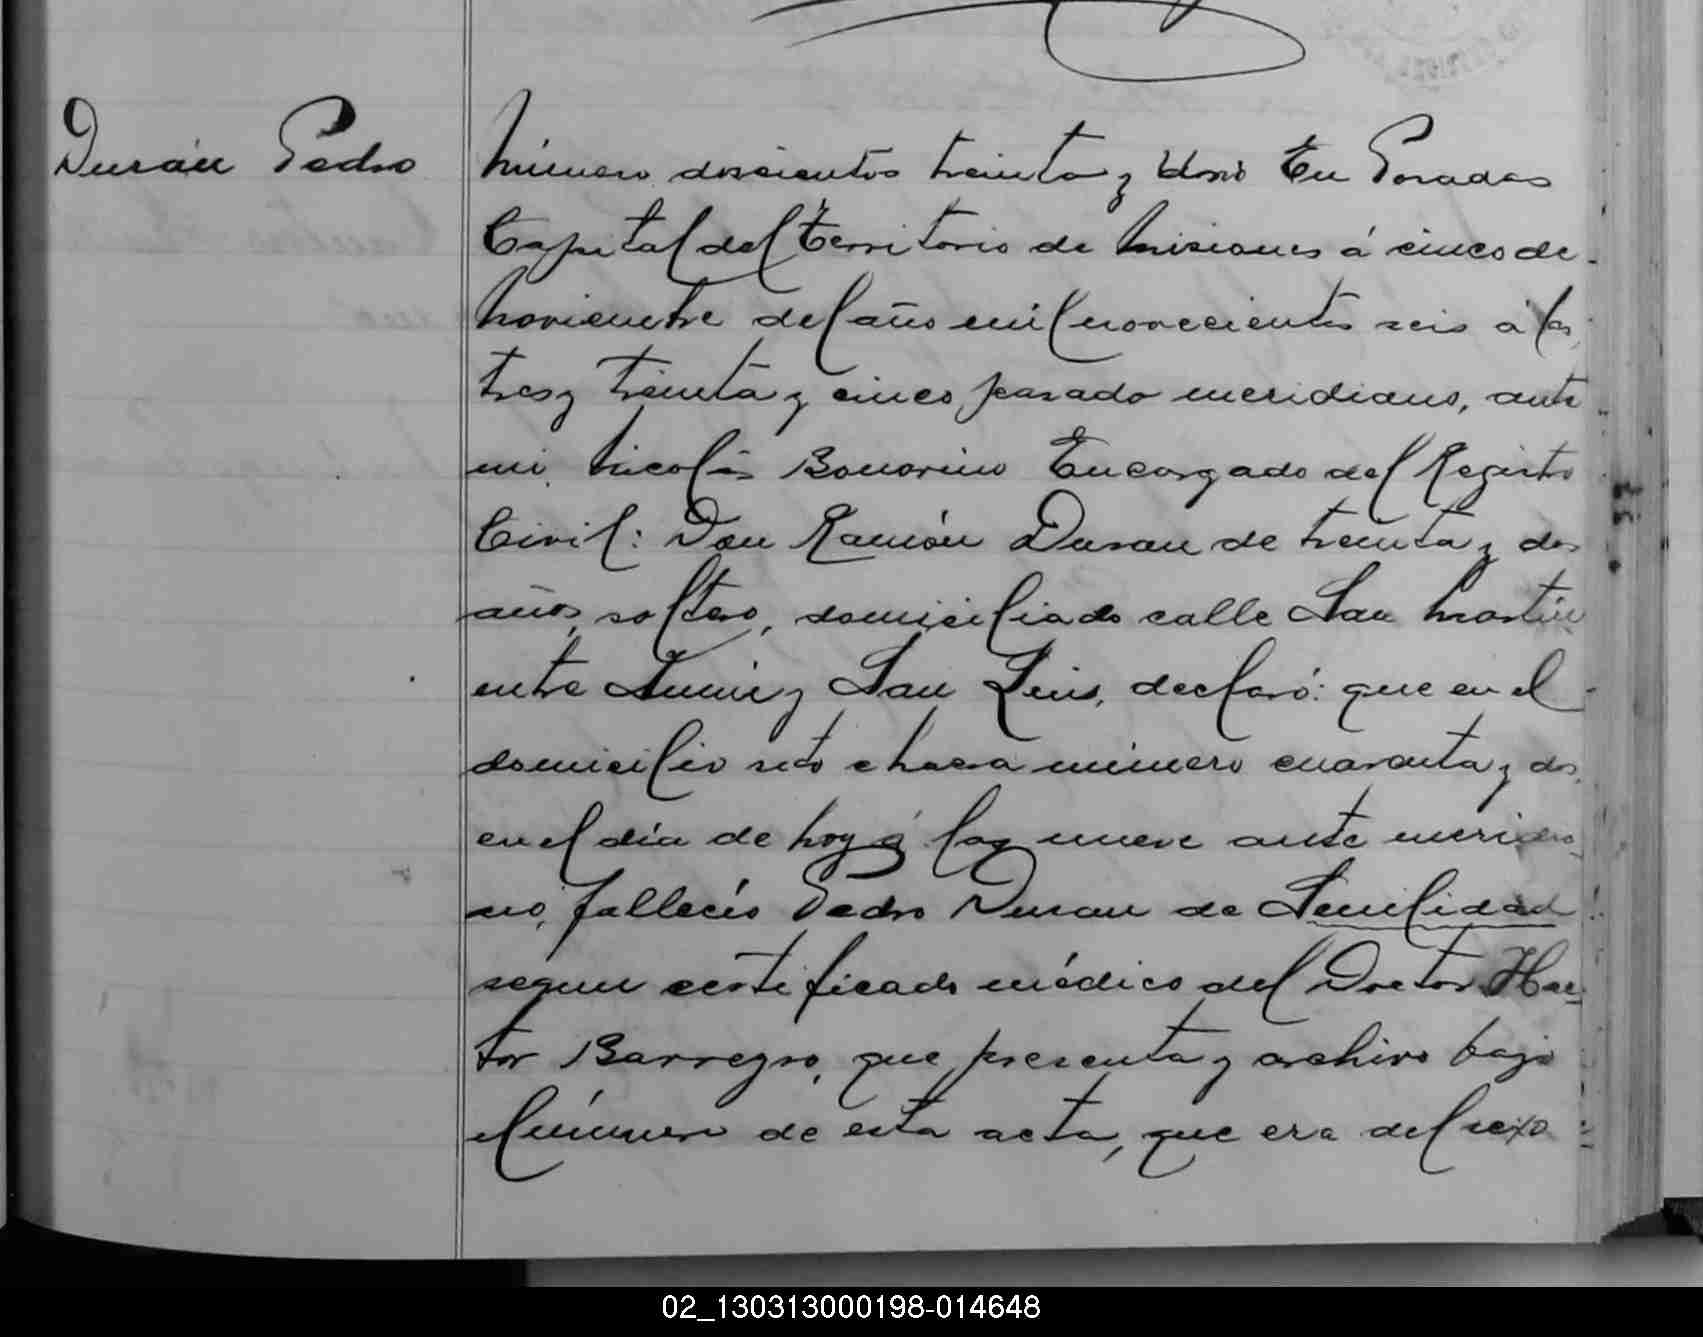 Durán Pedro
Número doscientos treinta y Uno En Posadas
Capital del Territorio de Misiones á cinco de
Noviembre del año mil novecientos seis á las
tres y treinta y cinco pasado meridiano, ante
mi Nicolás Bonorino Encargado del Registro
Civil: Don Ramón Duran de treinta y dos
años, soltero, domiciliado calle San Martin
entre Junin y San Luis, declaró: que en el
domicilio chacra número cuarenta y dos,
en el día de hoy á las nueve ante meridia
no, falleció Pedro Duran de Senilidad
segun certificado médico del Doctor Hec
tor Barreyro, que presenta y archivo bajo
el número de esta acta, que era del sexo
02_130313000198-014648